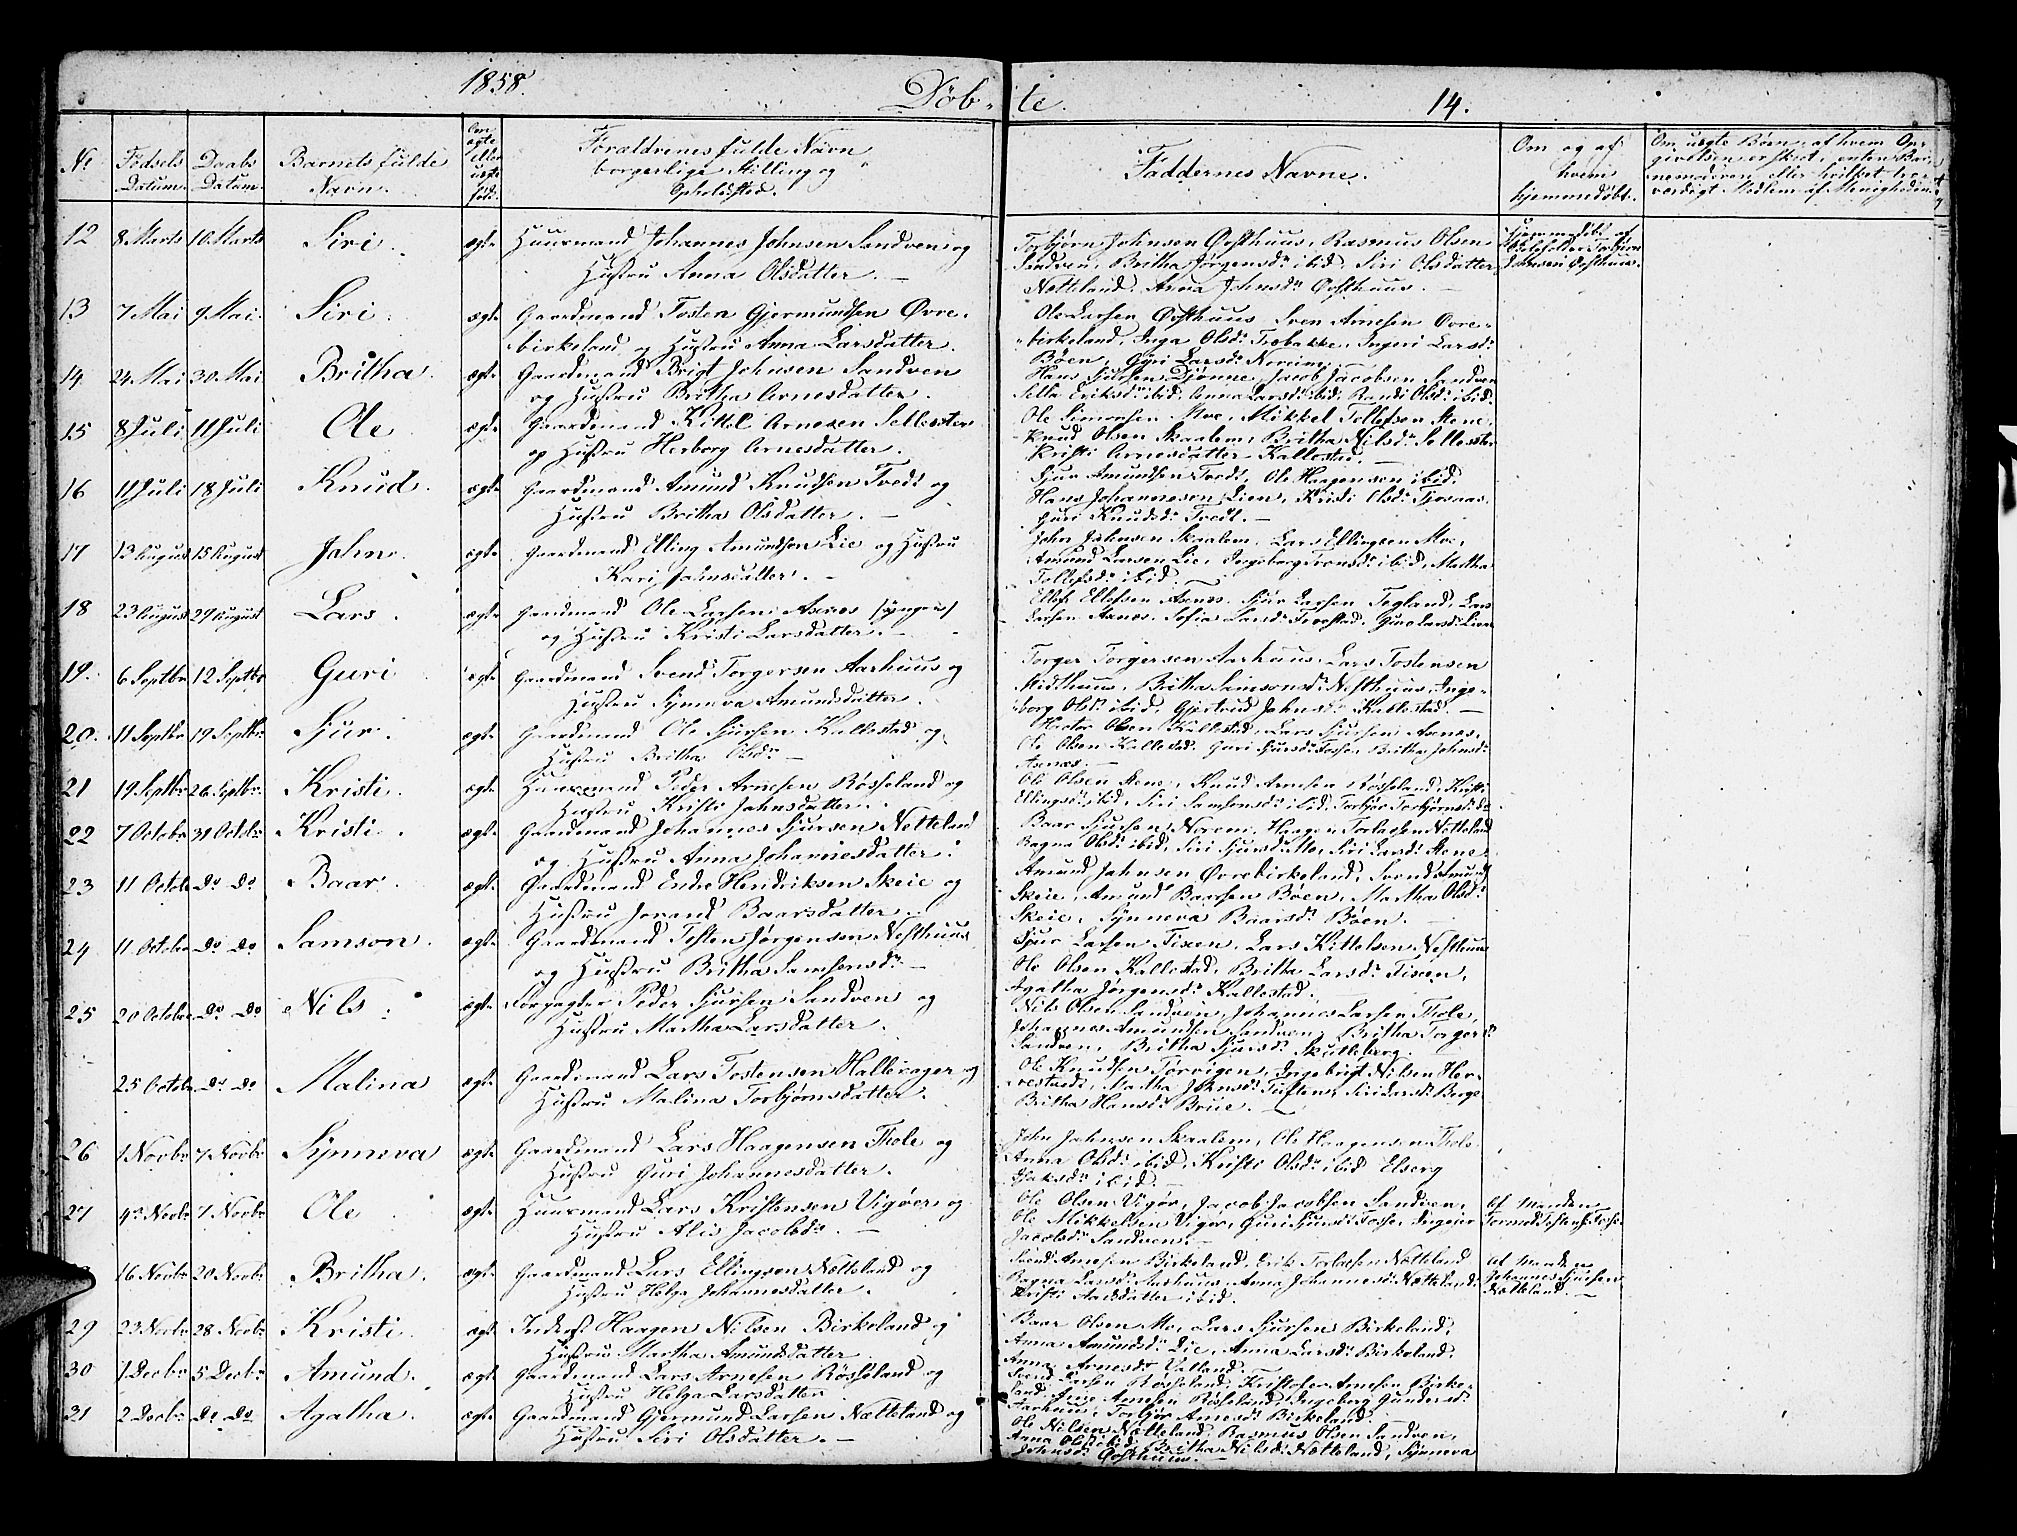 1858. Döb- te. 14.
No Födsels Datum. Daabs Datum. Barnets fulde Navn. Om ægte eller uægte født. Forældrenes fulde Navn borgerlige Stilling og Opholdsted. Faddernes Navne. Om og af hvem hjemmedøbt. Om uægte Børn: af hvem Opgivelsen er skeet, enten Barnemoderen eller
12 8 Marts 10 Marts Siri. ægte Huusmand Johannes Johnsen Sandven og
Hustru Anna Olsdatter. —
Torbjørn Johnsen Øosthuus, Rasmus Olsen
Sandven, Britha Jørgensdr ibid, Siri Olsdatter
Netteland, Anna Johnsdr Øosthuus. —
Hjemmedöbt af
Torbjørn
Johnsen Øosthuus.
13 7 Mai 9 Mai. Siri. ægte Gaardmand Tosten Gjermundsen Øvre-
birkeland og Hustru Anna Larsdatter.
Ole Larsen Øosthuus Sven Arnesen Øvre-
birkeland, Inga Olsdr Træbakke, Ingeri Larsdr
Böen, Gyri Larsdr Noreim.
14 24 Mai 30 Mai Britha. ægte Gaardmand Brigt Johnsen Sandven
og Hustru Britha Arnesdatter.
Hans Djönne, Jacob Jacobsen Sandven
Eriksdr ibid, Anna Larsdr ibid, Randi Olsdr ibid.
15 8 Juli 11 Juli Ole ægte Gaardmand Kittel Arnesen Sellester
og Hustru Herborg Arnesdatter.
Ole Simonsen Moe, Mikkel Tollefsen Stene,
Knud Olsen Skaalem, Britha Nilsdr Sellester
Kristi Arnesdatter Kallestad. —
16 11 Juli 18 Juli Knud. ægte Gaardmand Amund Knudsen Tvedt og
Hustru Britha Olsdatter. —
Sjur Amundsen Tvedt, Ole Haagensen ibid.
Hans Johannesen Lien, Kristi Olsdr Tjosaas.
Guri Knudsdr Tvedt. —
17 13 August 15 August John. ægte Gaardmand Elling Amundsen Lie og Hustru
Kari Johnsdatter. —
John Johnsen Skaalem. Lars Ellingsen Moe,
Amund Larsen Lie, Ingeborg ibid, Martha
Tollefsdr ibid.
18 23 August 29 August Lars. ægte Gaardmand Ole Larsen Axnes (yngere)
og Hustru Kristi Larsdatter. —
Ellef Ellefsen Axnes. Sjur Larsen Tegland, Lars
Larsen Axnes. Sofia Larsdr
19. 6 Septbr 12 Septbr Guri ægte Gaardmand Svend Torgersen Aarhuus og
Hustru Synneva Amundsdatter.
Torger Torgersen Aarhuus, Lars Tostensen
Midthuus, Britha Samsonsdr Nesthuus, Inge-
borg Olsdr ibid, Gjertrud Johnsdr Kallestad. —
20. 11 Septbr 19 Septbr Sjur. ægte Gaardmand Ole Sjursen Kallestad og
Hustru Britha Olsdr —
Olsen Kallestad, Lars Sjursen Axnes,
Ole Olsen Guri Sjursdr Tosse, Britha Johnsdr
Axnes. —
21 19 Septbr 26 Septbr. Kristi. ægte Huusmand Peder Arnesen Røsseland og
Hustru Kristi Johnsdatter.
Ole Olsen Stene, Knud Arnesen Røsseland, Kristi
Ellingsdr ibid, Siri Samsonsdr ibid.
22 7 Octobr 31 Octobr Kristi. ægte Gaardmand Johannes Sjursen Netteland
og Hustru Anna Johannesdatter.
Baar Sjursen Noreim. Haagen Torlaesen Netteland
Ragna Olsdr ibid, Siri Sjursdr Mo, Siri Larsdr Stene.
23 11 Octobr Do Do Baar. ægte Gaardmand Endre Hendriksen Skeie og
Hustru Jorand Baarsdatter.
Amund Johnsen Øvrebirkeland, Svend Amunds.
Skeie, Amund Baarsen Böen, Martha Olsdr
Skeie, Synneva Baarsdr Böen.
24 11 October Do Do Samson. ægte Gaardmand Tosten Jørgensen Nesthuus
og Hustru Britha Samsonsdr —
Sjur Larsen Fixen, Lars Kittelsen Nesthuus
Ole Olsen Kallestad, Britha Larsdr Fixen,
Agatha Jørgensdr Kallestad.
25 20 Octobr Do Do Nils. ægte Forpagter Peder Sjursen Sandven og
Hustru Martha Larsdatter.
Nils Olsen Sandven, Johannes Larsen Thole,
Johannes Amundsen Sandven, Britha Torgersdr
Sandven, Britha Sjursdr Skutleberg.
25 Octobr Do Do Malina ægte Gaardmand Lars Tostensen Hallerager og
Hustru Malina Torbjørnsdatter.
Ole Knudsen Torvigen, Ingebrigt Nilsen Her-
vestad, Martha Johnsdr Tuften, Siri Larsdr Berge
Britha Hansdr Brue. —
26 1 Novbr 7 Novbr Synneva ægte Gaardmand Lars Haagensen Thole og
Hustru Guri Johannesdatter.
John Johnsen Skaalem, Ole Haagensen Thole
Anna Olsdr ibid, Kristi Olsdr ibid Elserg
Isaksdr ibid. —
27 4de Novbr 7 Novbr. Ole ægte Huusmand Lars Kristensen Vigöer og
Hustru Alis Jacobsdr. —
Ole Olsen Vigør, Jacob Jacobsen Sandven,
Ole Mikkelsen Vigør, Guri Sjursdr Tosse, Ingeger
Jacobsdr Sandven. —
Af Manden
Tormod Tostens. Tosse.
16 Novbr 20 Novbr Britha. ægte Gaardmand Lars Ellingsen Netteland og
Hustru Helga Johannesdatter.
Svend Arnesen Birkeland, Erik Torlaesen Netteland
Ragna Larsdr Aarhuus, Anna Johannesdr Netteland.
Kristi Aadsdatter ibid.
Af Manden
Johannes Sjursen
Netteland. —
29 23 Novbr 28 Novbr Kristi. ægte Inderst Haagen Nilsen Birkeland og
Hustru Martha Amundsdatter.
Baar Olsen Mo, Lars Sjursen Birkeland,
Anna Amundsdr Lie, Anna Larsdr Birkeland,
Anna Arnesdr Valland.
30 1 Decbr 5 Decbr Amund. ægte Gaardmand Lars Arnesen Røsseland og
Hustru Helga Larsdatter
Svend Larsen Røsseland, Kristofer Arnesen Birke-
land, Arne Arnesen Røsseland, Ingeborg Gundersdr
Aarhuus, Torbjør Arnesdr Birkeland.
31 2 Decbr Do Do Agatha. ægte Gaardmand Gjermund Larsen Netteland og
Hustru Siri Olsdatter. —
Ole Nilsen Netteland, Rasmus Olsen Sandven,
Anna Olsdr ibid, Britha Nilsdr Netteland, Synneva
Johnsdr Øosthuus. —